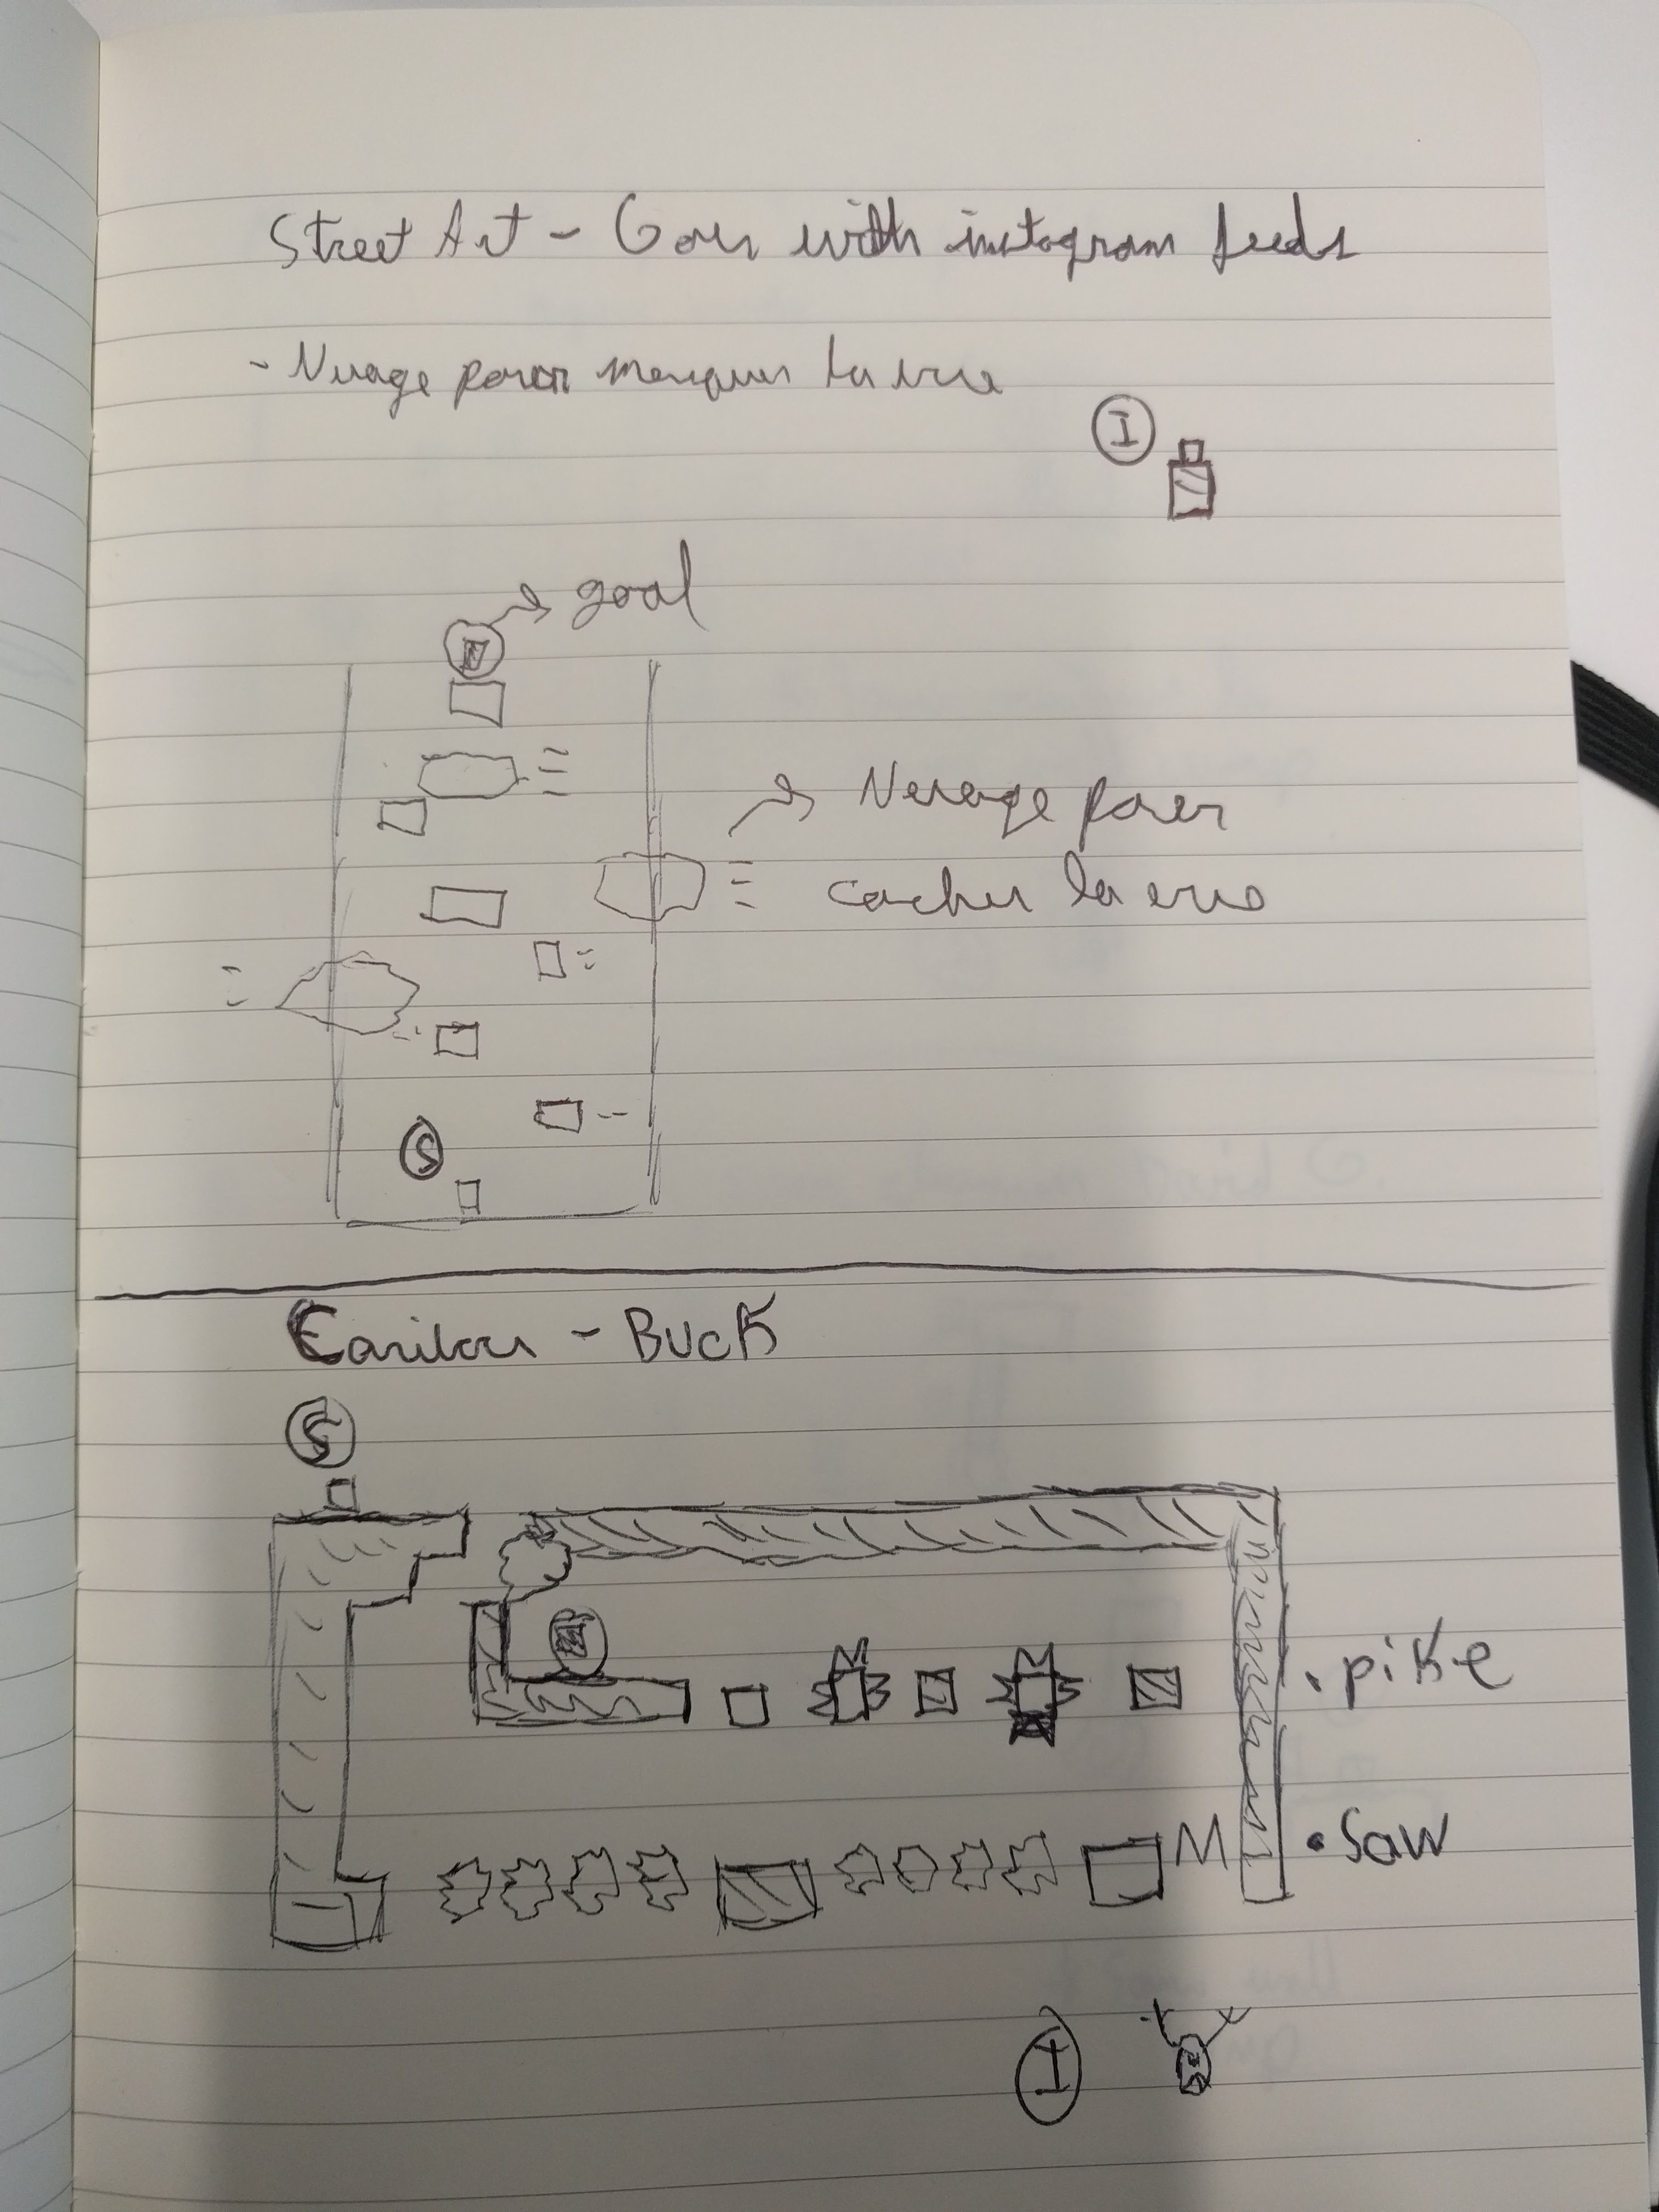 Street Art - with instagram feeds
- Nuage pour masquer la vue
I
goal
Nuage pour
cacher la vue
S
Caribou - Buck
S
. pike
• Saw
I